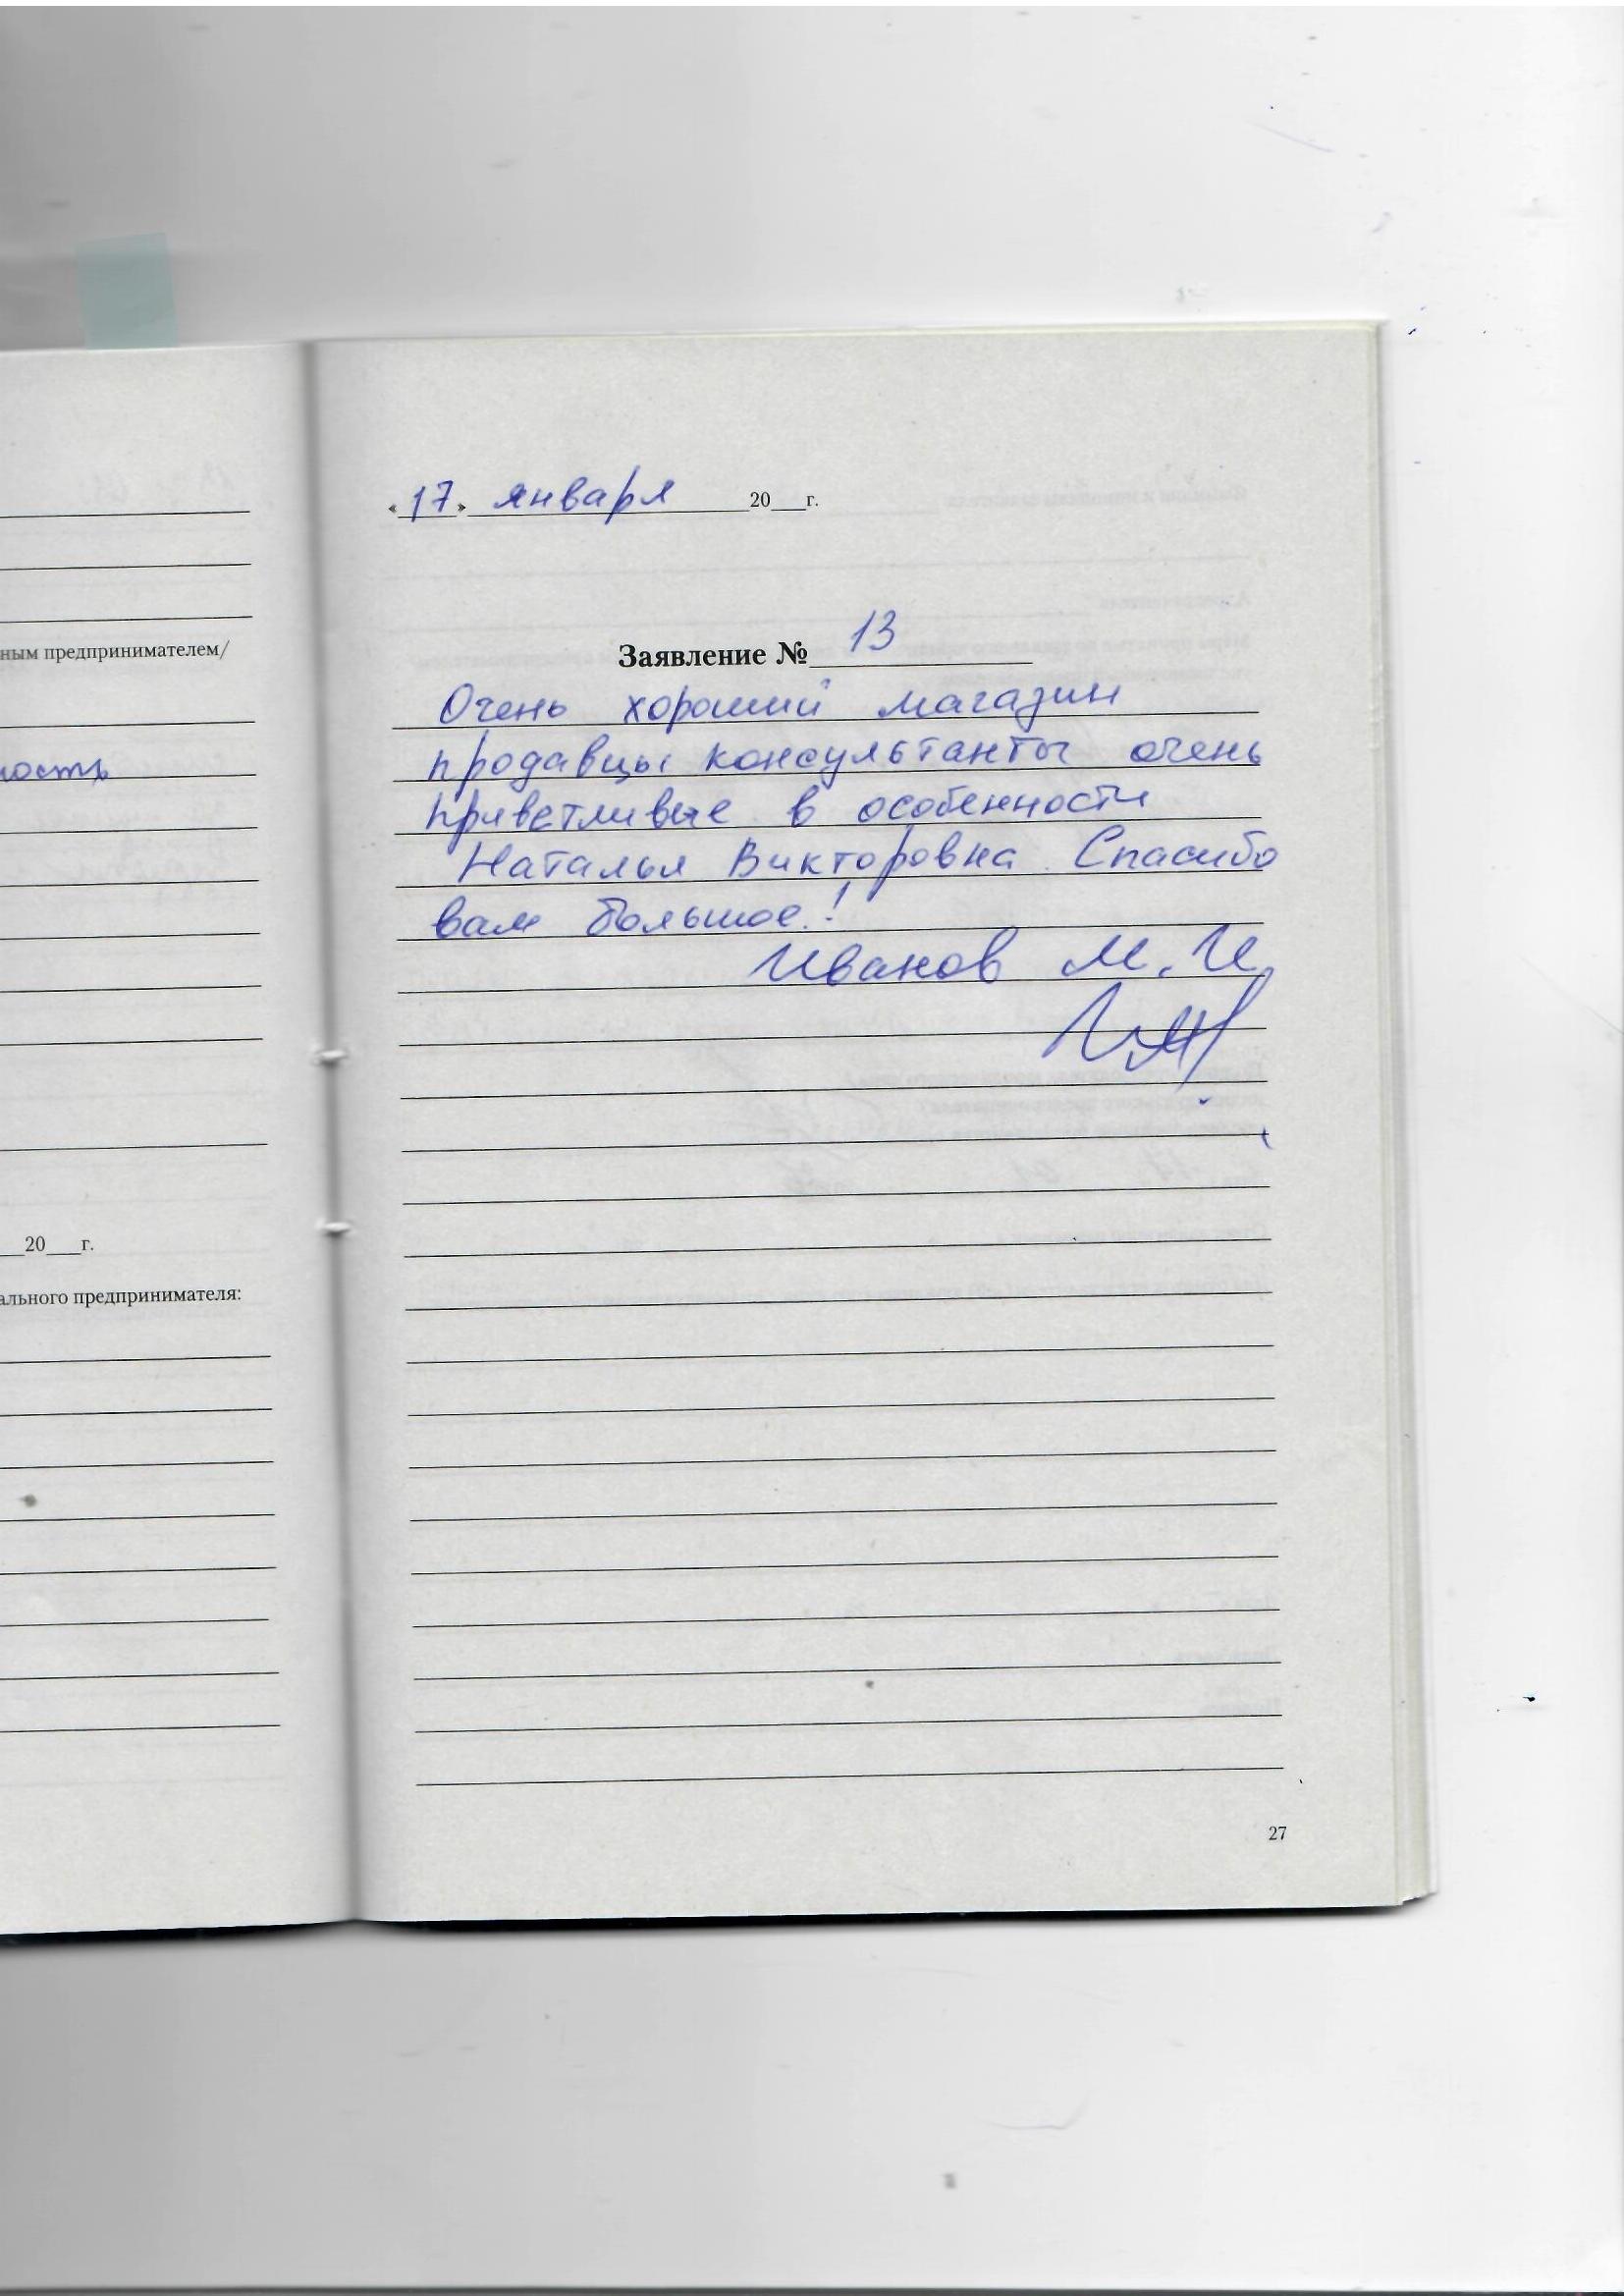 «17» января 20___г.
Заявление № 13
Очень хороший магазин
продавцы консультанты очень
приветливые в особенности
Наталья Викторовна. Спасибо
вам большое!
Иванов М.И.
27
ным предпринимателем/
ность
20___г.
ального предпринимателя: